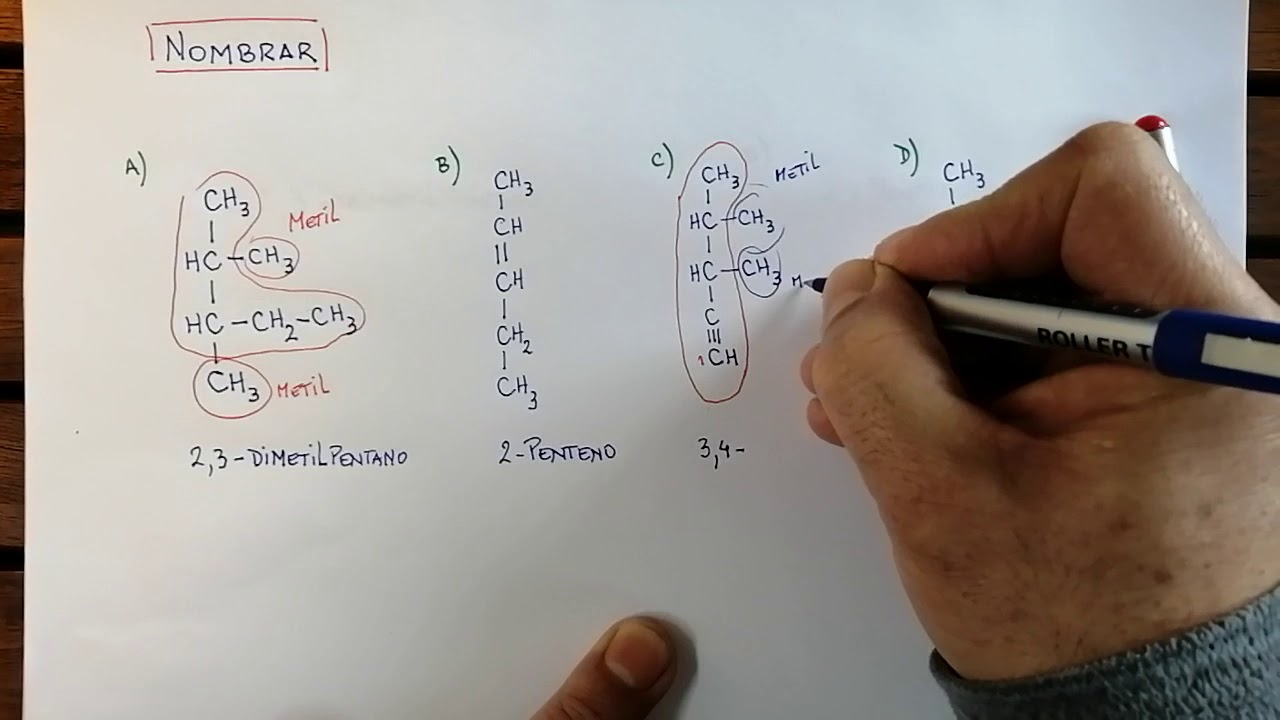 NOMBRAR
A)
CH3
Metil
HC-CH3
HC-CH2-CH3
CH3 METIL
2,3-DIMETILPENTANO
B)
CH3
CH
CH
CH2
CH3
2-PENTENO
C)
CH3 METIL
HC-CH3
HC-CH3 M
C
1CH
3,4-
D)
CH3
ROLLER T